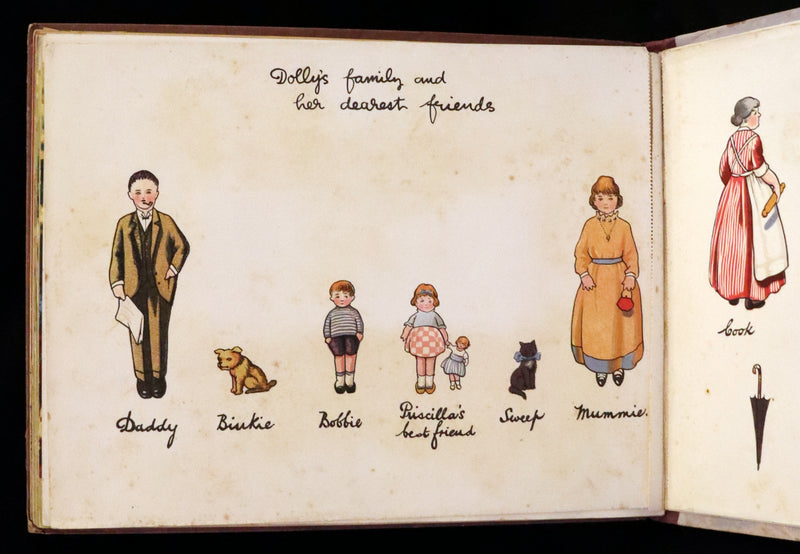 Dolly's family and
her dearest friends
Daddy
Binkie
Bobbie
Priscilla's
best friend
Sweep
Mummie.
Cook